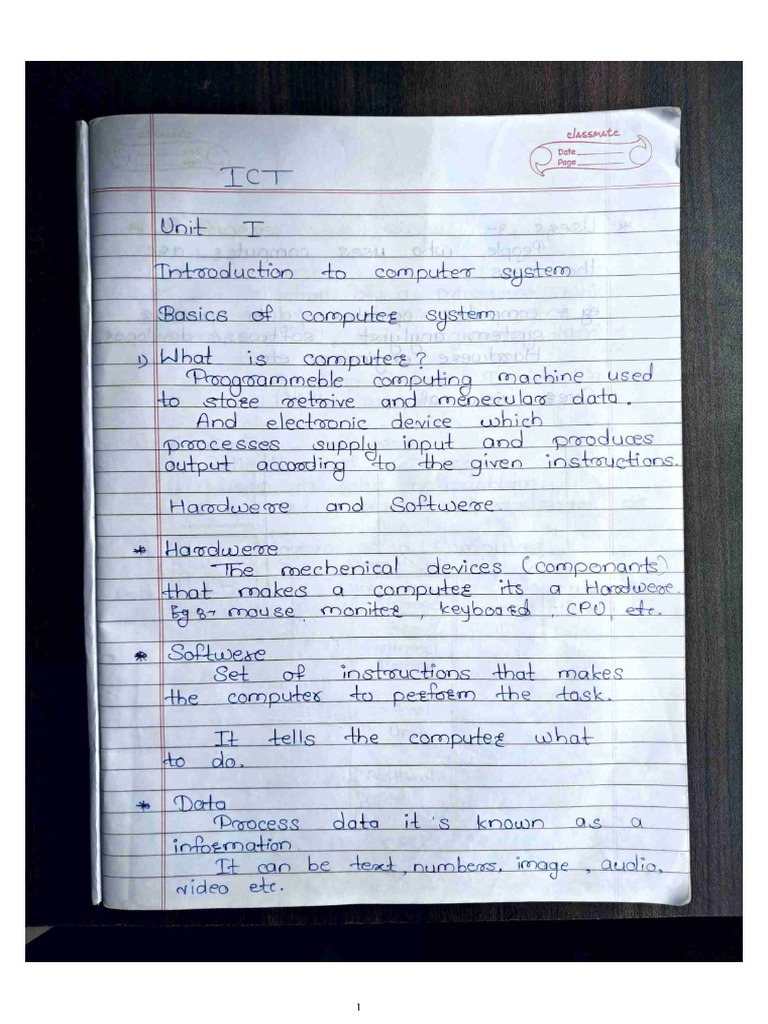 classmate
Date
Page
ICT
Unit I
Introduction to computer system
Basics of computer system
1) What is computer?
Programmeble computing machine used
to store retrive and menecular data.
And electronic device which
processes supply input and produces
output according to the given instructions.
Hardwere and Softwere
* Hardwere
The mechenical devices (componants)
that makes a computer its a Hardwere.
Eg :- mouse, moniter, keyboard, CPU, etc.
* Softwere
Set of instructions that makes
the computer to perform the task.
It tells the computer what
to do.
* Data
Process data it's known as a
information.
It can be text, numbers, image, audio,
video etc.
1